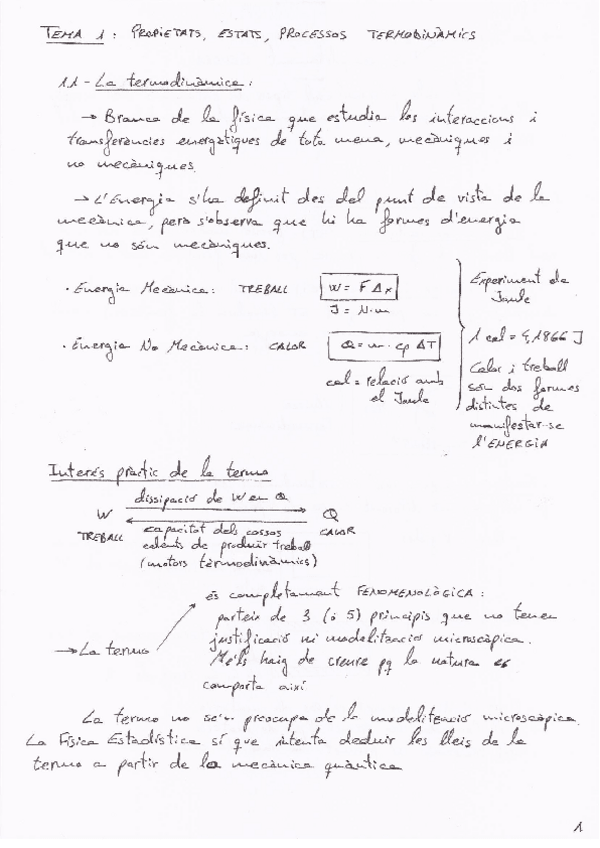 TEMA 1: PROPIETATS, ESTATS, PROCESSOS TERMODINÀMICS
1.1 - La termodinàmica:
→ Branca de la física que estudia les interaccions i
transferències energètiques de tota mena, mecàniques i
no mecàniques.
→ L'Energia s'ha definit des del punt de vista de la
mecànica, però s'observa que hi ha formes d'energia
que no són mecàniques.
· Energia Mecànica: TREBALL W = F Δx
J = N·m
· Energia No Mecànica: CALOR Q = m · cp ΔT
cal = relació amb
el Joule
Experiment de
Joule
1 cal = 4,1866 J
Calor i treball
són dos formes
distintes de
manifestar-se
l'ENERGIA
Interés pràctic de la termo
dissipació de W en Q
W Q
TREBALL CALOR
capacitat dels cossos
calents de produir treball
(motors tèrmodinàmics)
→ La termo
és completament FENOMENOLÒGICA:
parteix de 3 (ó 5) principis que no tenen
justificació ni modelització microscòpica.
Me'ls haig de creure pq la natura es
comporta així
La termo no se'n preocupa de la modelització microscòpica.
La Física Estadística sí que intenta deduir les lleis de la
termo a partir de la mecànica quàntica
1